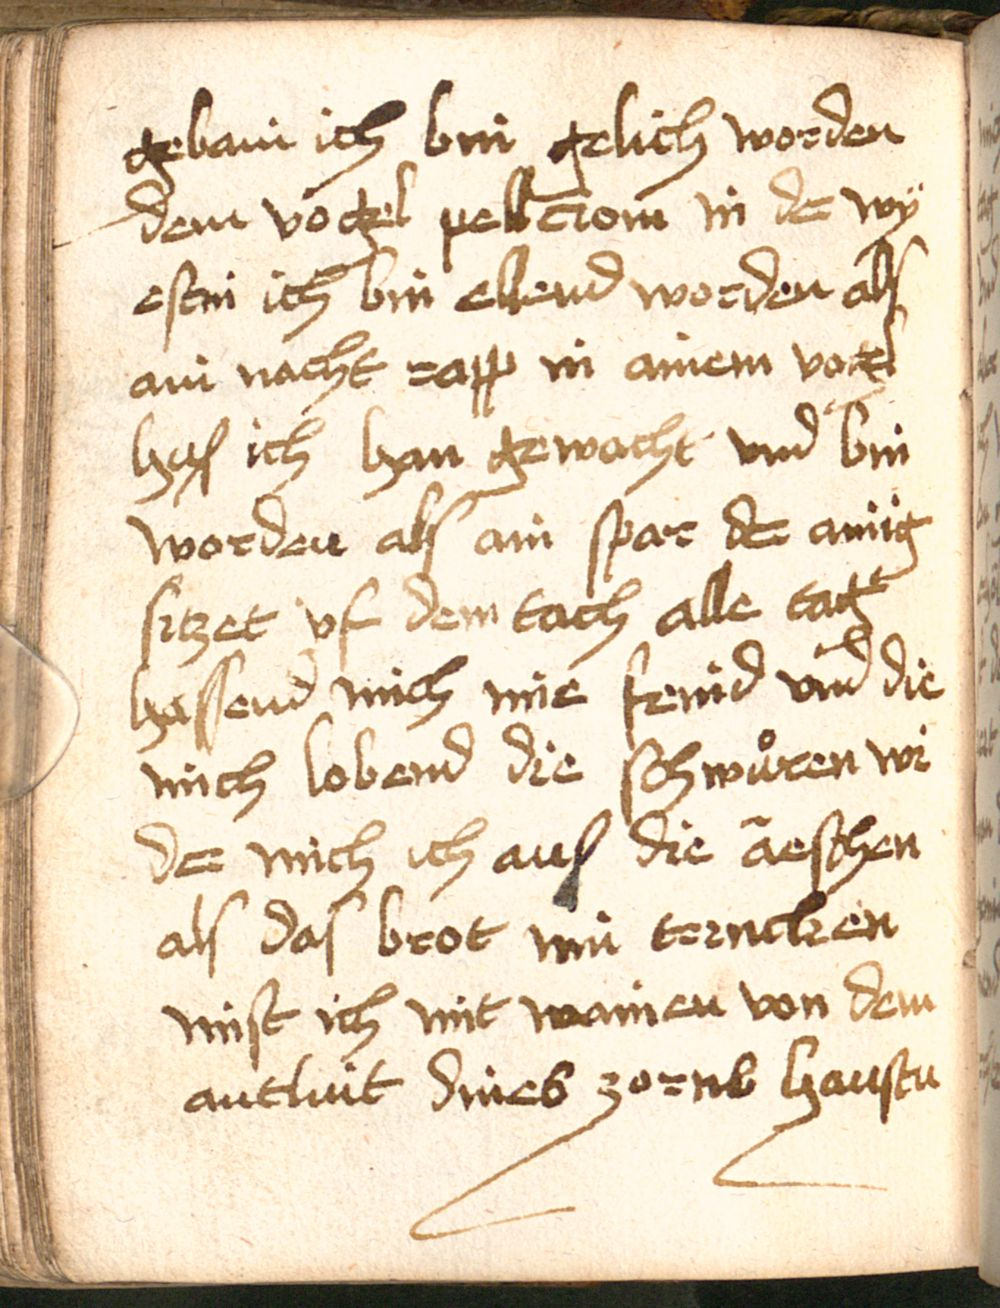 gebain ich bin gelich worden
dem vogel pellicrom in de wÿ
estin ich bin ellend worden als
ain nacht rapp in ainem vogel
hus ich han gewacht vnd bin
worden als ain spar de ainig
sitzet vf dem tach alle tag
hassend mich mie feind vnd die
mich lobend die schwůren wi
de mich ich aus die äeschen
als das brot min trincken
mist ich mit wainen von dem
antluit dines zorns haustu